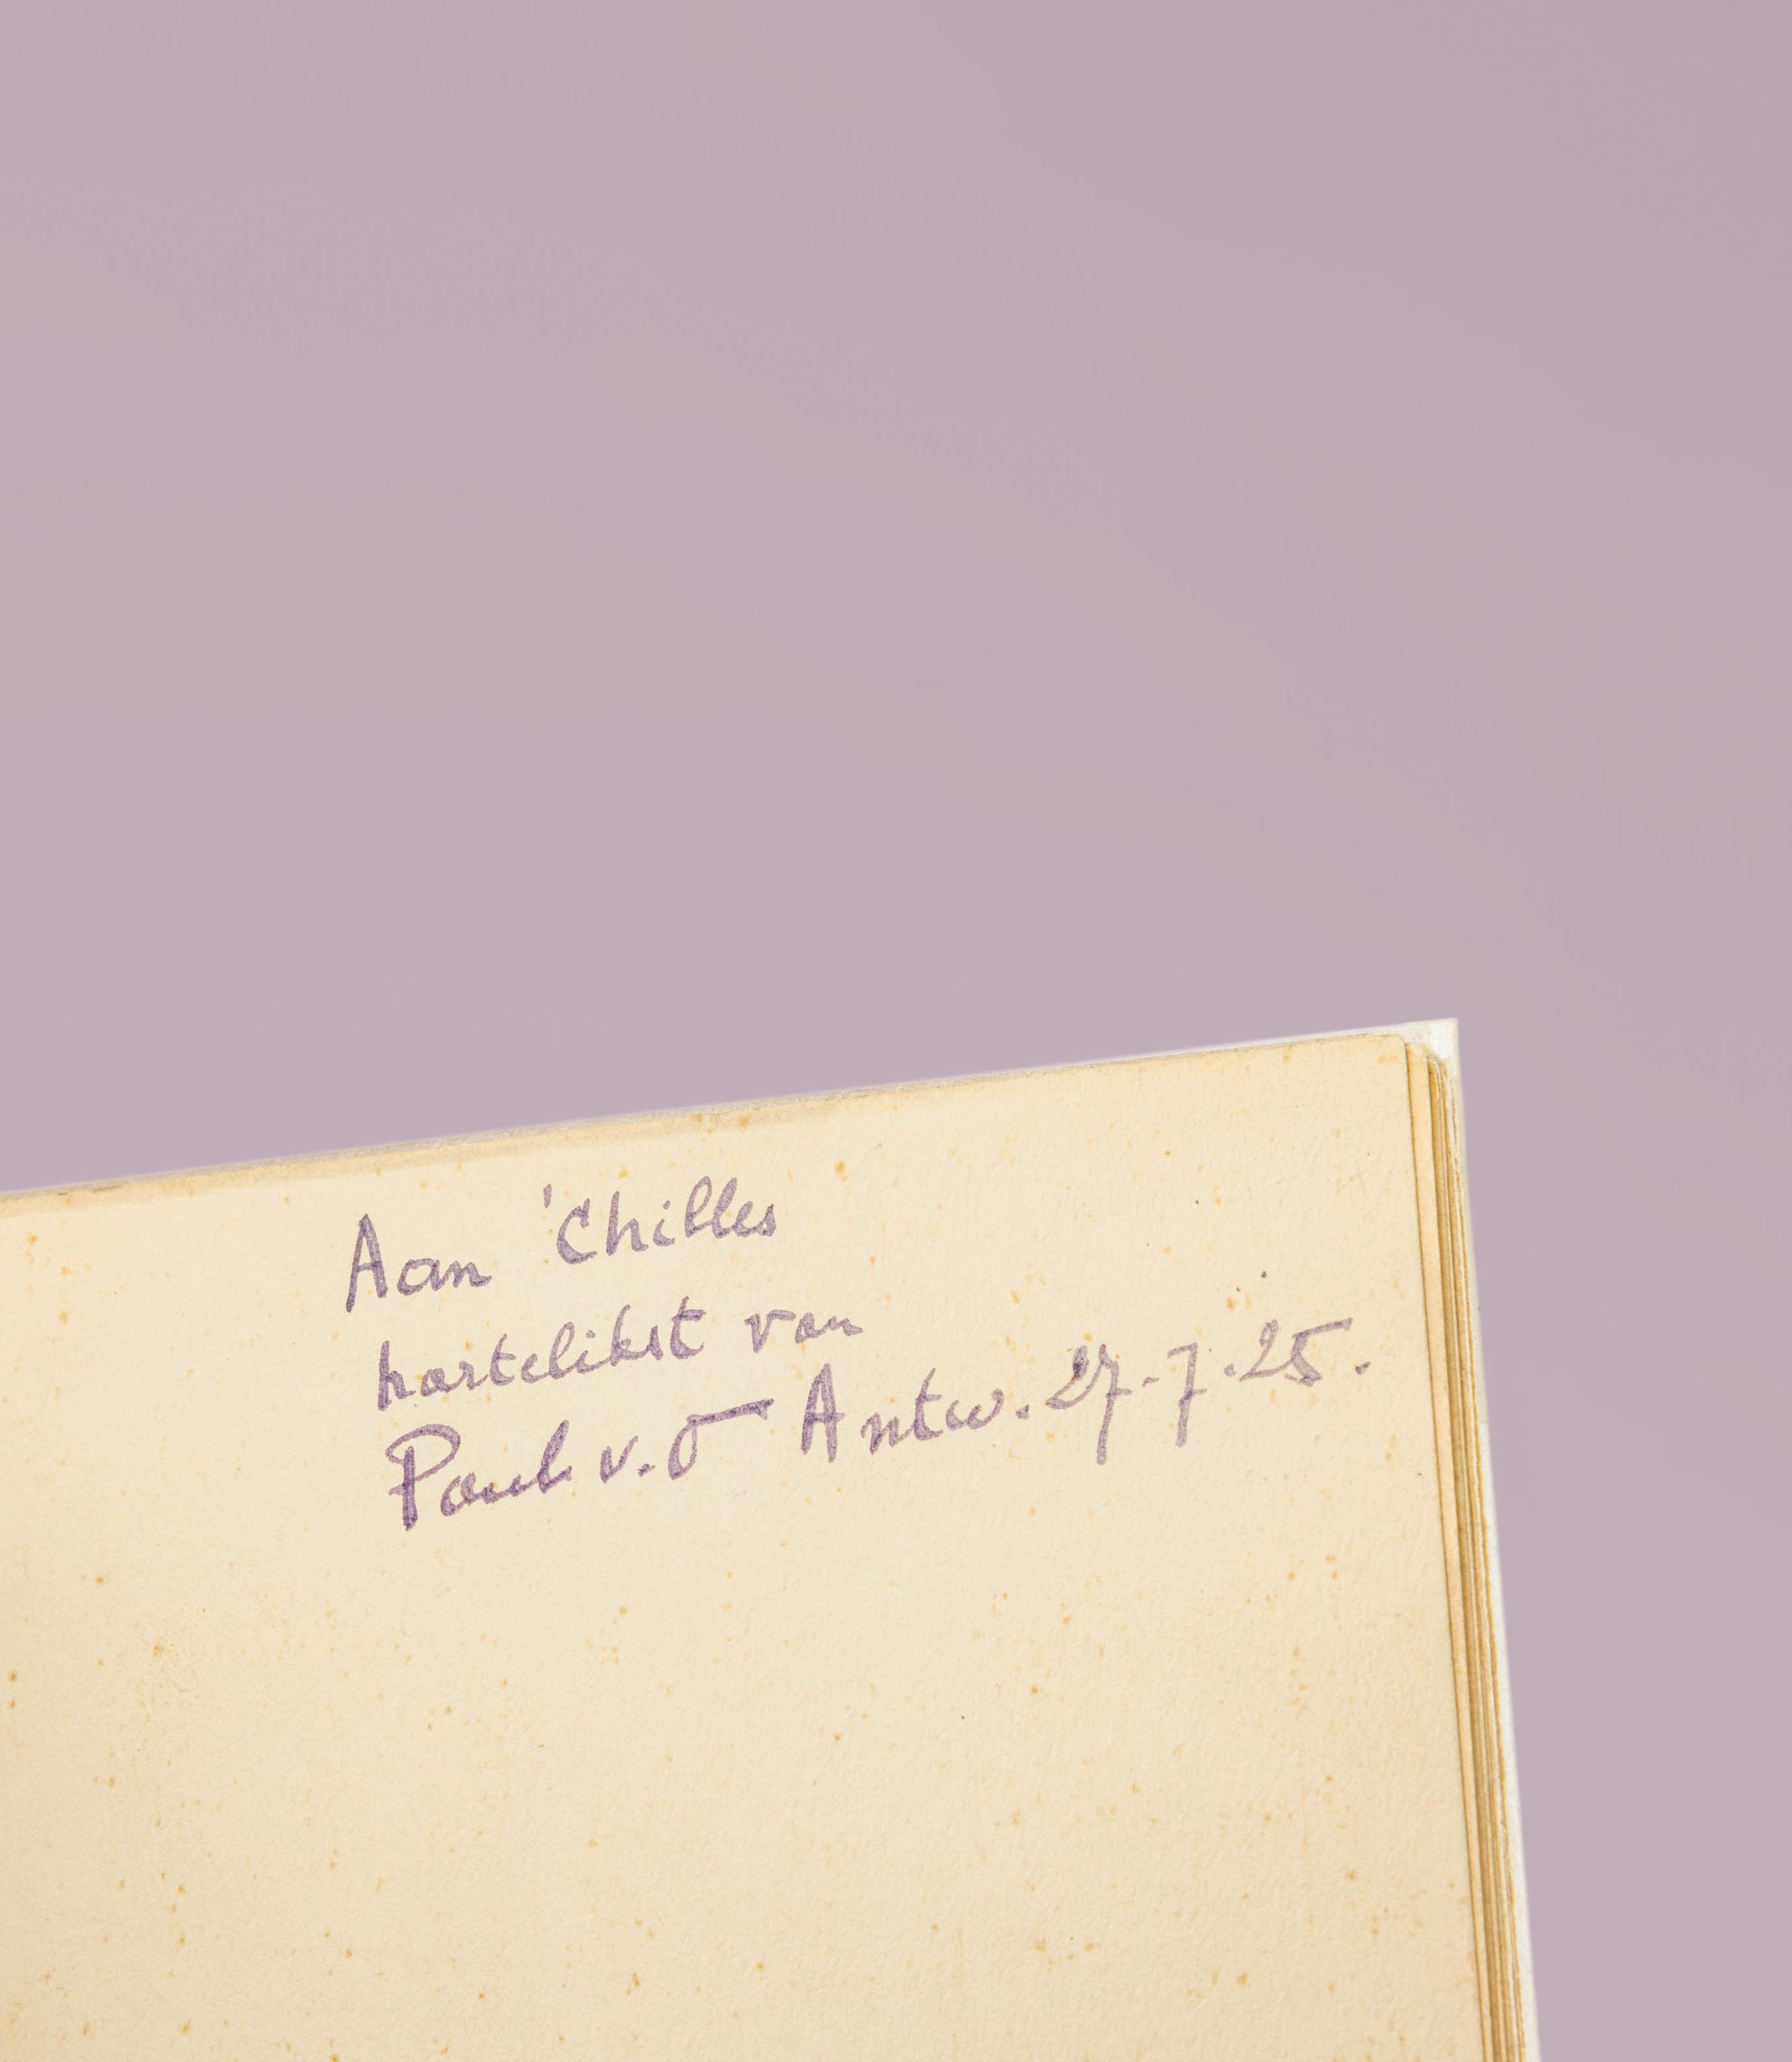 Aan 'Chilles
hartelikst van
Paul v. O Antw. 27.7.25.